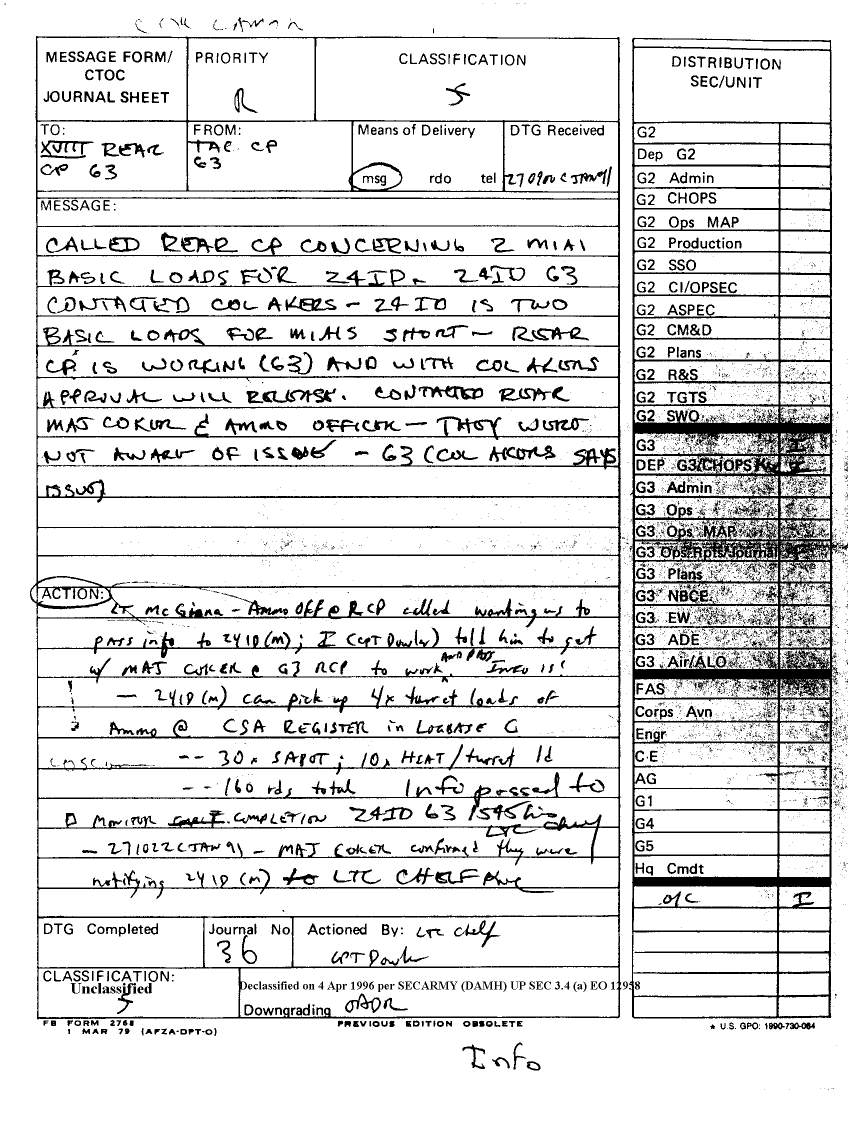 MESSAGE FORM/
CTOC
JOURNAL SHEET
PRIORITY
R
CLASSIFICATION
S
DISTRIBUTION
SEC/UNIT
TO:
XVIII REAR
CP G3
FROM:
TAC CP
G3
Means of Delivery
msg rdo tel
DTG Received
MESSAGE:
CALLED REAR CP CONCERNING 2 M1A1
BASIC LOADS FOR 24ID. 24ID G3
CONTACTED COL AKERS - 24 ID IS TWO
BASIC LOADS FOR M1A1S SHORT - REAR
CP IS WORKING (G3) AND WITH COL AKERS
APPROVAL WILL RELEASE. CONTACTED REAR
MAJ COKER & AMMO OFFICER - THEY WERE
NOT AWARE OF ISSUE - G3 (COL AKERS SAYS
ISSUE)
ACTION:
LT McGinna - Ammo Off @ RCP called wanting us to
pass info to 24ID(M); I (CPT Dowler) told him to get
w/ MAJ COKER @ G3 RCP to work AND PASS. INFO IS!
- 24ID(M) can pick up 4x turret loads of
Ammo @ CSA REGISTER in LOGBASE C
-- 30x SABOT; 10x HEAT/turret ld
-- 160 rds total Info passed to
MONITOR COMPLETION 24ID G3 1545 hrs
LTC Chelf
- 271022CJAN91 - MAJ COKER confirmed they were
notifying 24ID(M) LTC CHELF
DTG Completed
Journal No
36
Actioned By: LTC Chelf
CPT Dowler
CLASSIFICATION:
Unclassified
S
Declassified on 4 Apr 1996 per SECARMY (DAMH) UP SEC 3.4 (a) EO 12958
Downgrading OADR
FB FORM 2768
1 MAR 79 (AFZA-DPT-O)
PREVIOUS EDITION OBSOLETE
* U.S. GPO: 1990-730-064
Info
G2
Dep G2
G2 Admin
G2 CHOPS
G2 Ops MAP
G2 Production
G2 SSO
G2 CI/OPSEC
G2 ASPEC
G2 CM&D
G2 Plans
G2 R&S
G2 TGTS
G2 SWO
G3 I
DEP G3/CHOPS
G3 Admin
G3 Ops
G3 Ops MAP
G3 Ops Rpts/Journal
G3 Plans
G3 NBCE
G3 EW
G3 ADE
G3 Air/ALO
FAS
Corps Avn
Engr
C-E
AG
G1
G4
G5
Hq Cmdt
I